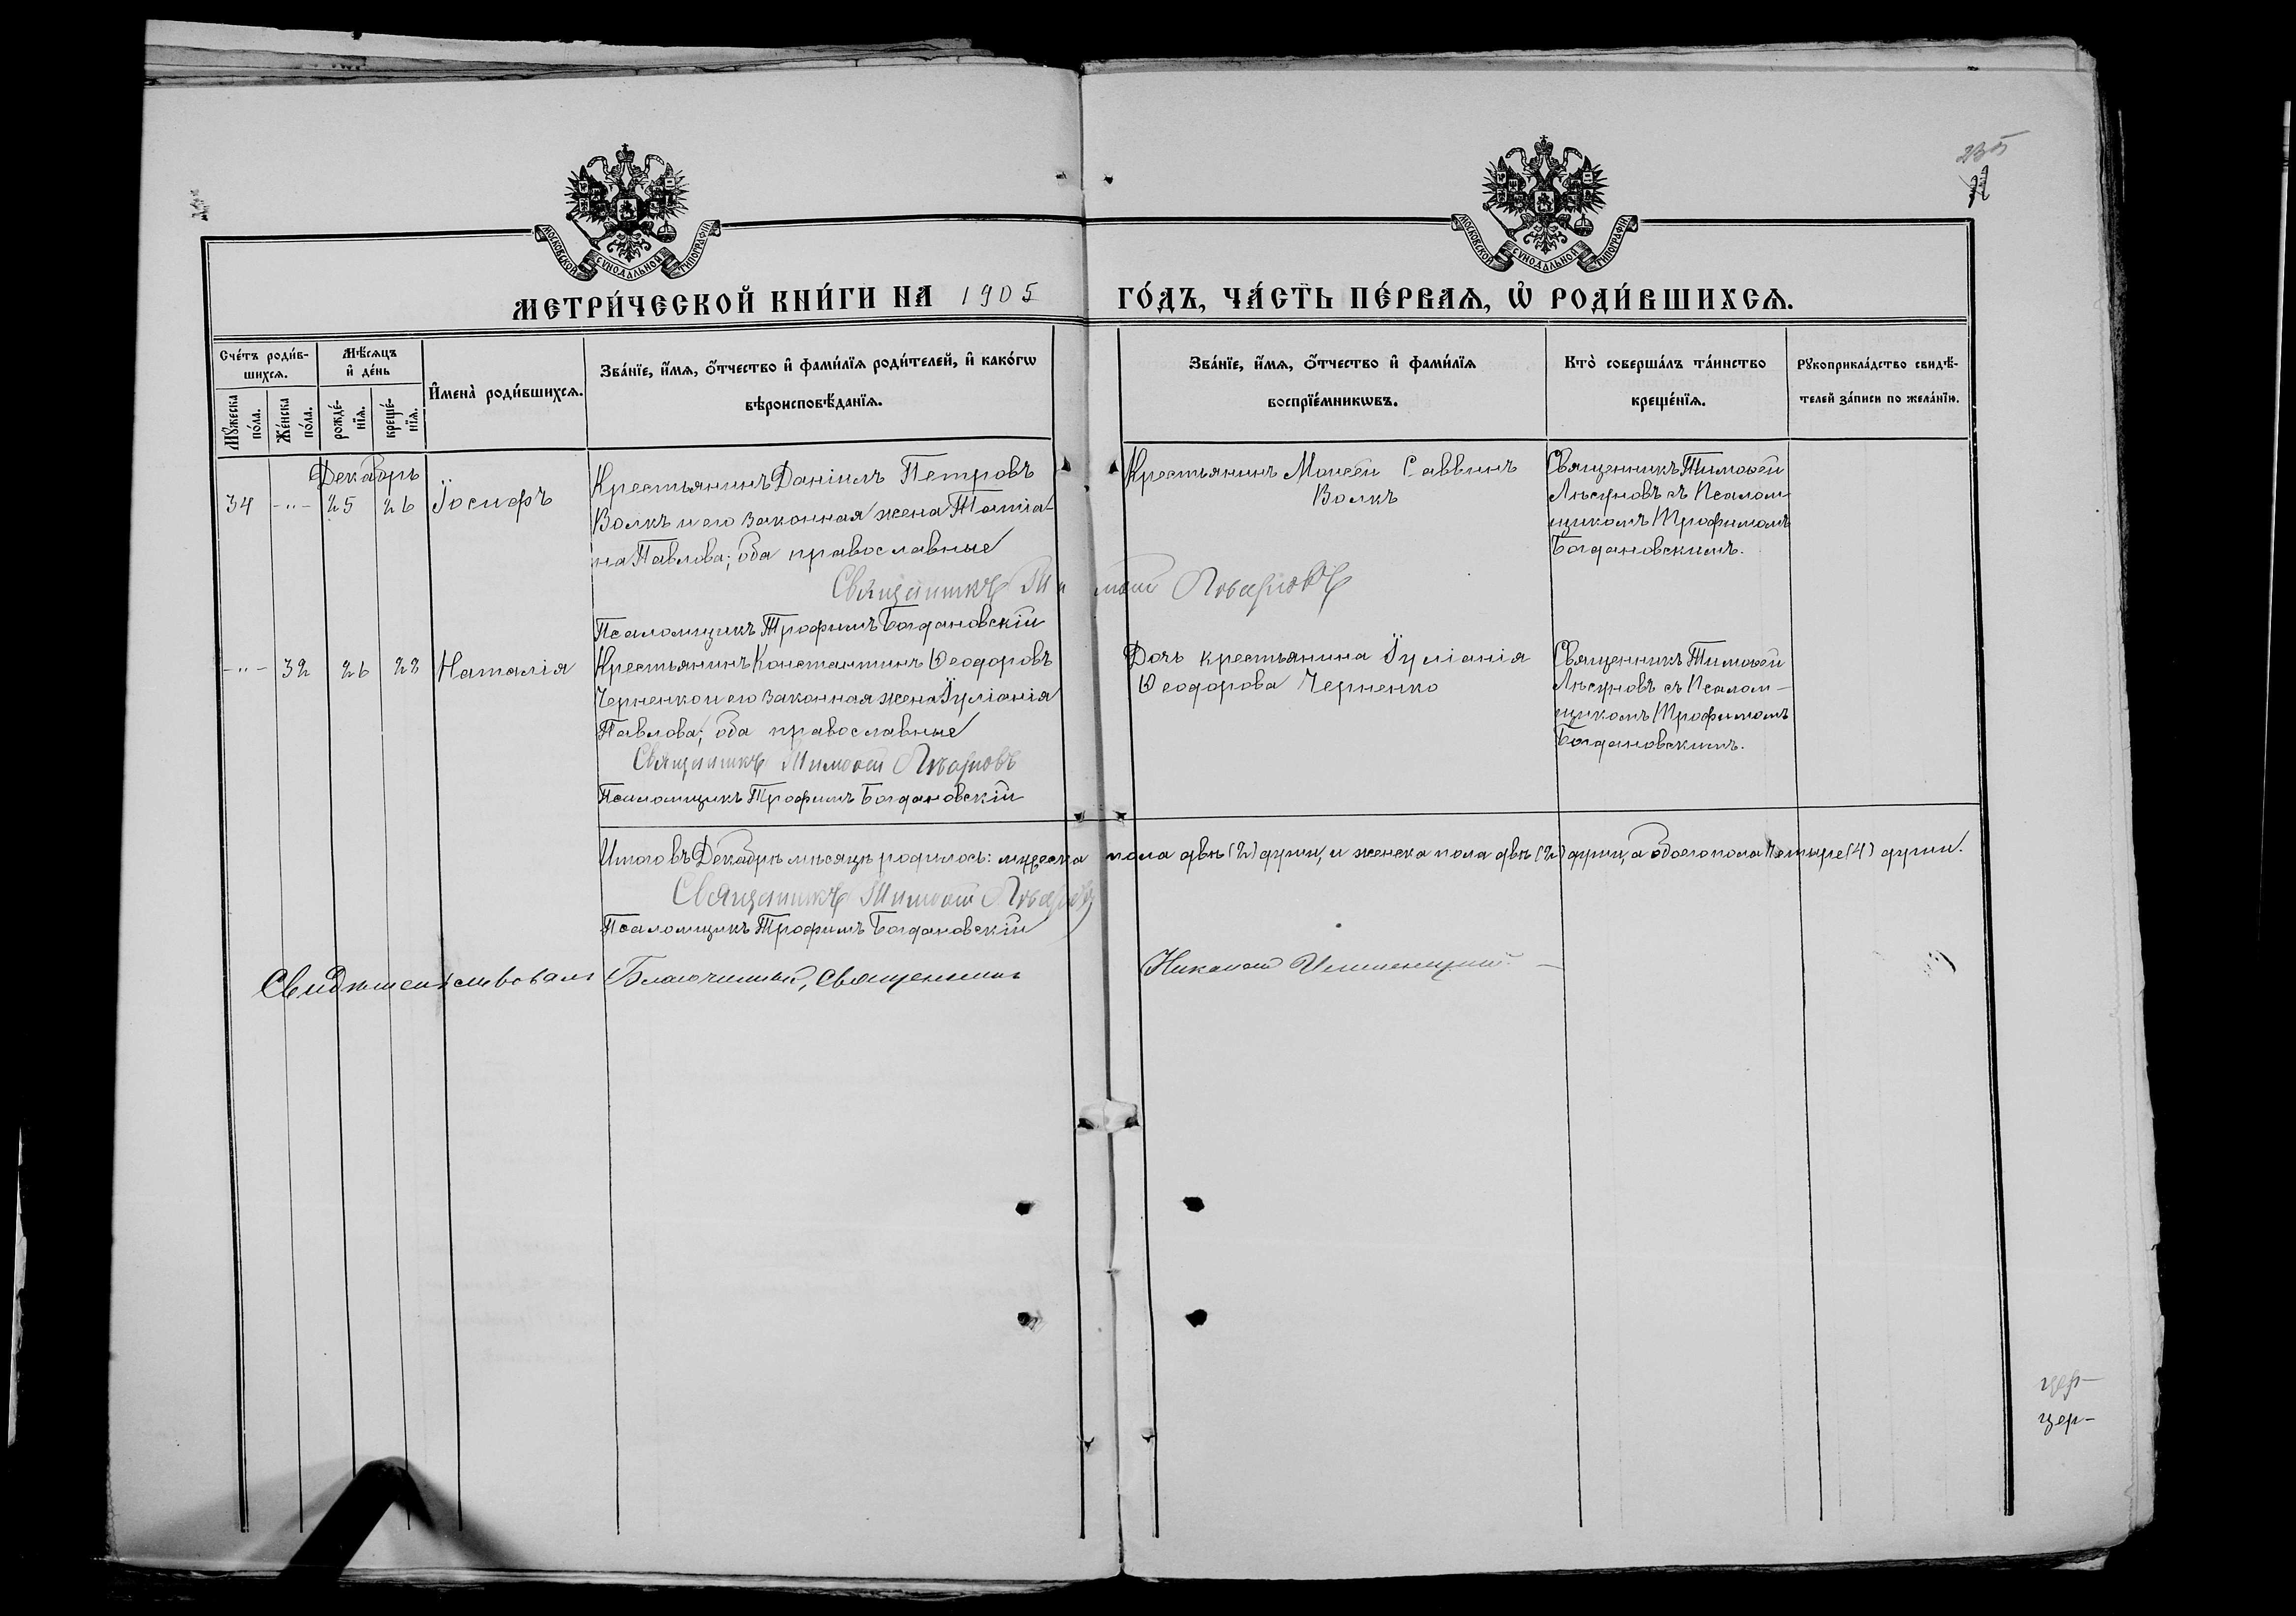 235
МОСКОВСКОЙ СѴНОДАЛЬНОЙ ТИПОГРАФІИ
МОСКОВСКОЙ СѴНОДАЛЬНОЙ ТИПОГРАФІИ
МЕТРИ́ЧЕСКОЙ КНИ́ГИ НА 1905 ГО́ДЪ, ЧА́СТЬ ПЕ́РВАЯ, Ѡ҆ РОДИ́ВШИХСЯ.
Сче́тъ роди́в-
шихся.
Мꙋ́жеска по́ла.
Же́нска по́ла.
Мѣ́сяцъ
и҆ де́нь
рожде́-
нїя.
креще́-
нїя.
И҆мена̀ роди́вшихся.
Зва́нїе, и҆́мя, ѻ҆́тчество и҆ фами́лїя роди́телей, и҆ како́гѡ
вѣроисповѣ́данїя.
Зва́нїе, и҆́мя, ѻ҆́тчество и҆ фами́лїя
воспрїе́мникѡвъ.
Кто̀ соверша́лъ та́инство
креще́нїя.
Рꙋкоприкла́дство свидѣ́-
телей за́писи по жела́нїю.
Декабрь
34 -"- 25 26 Іосифъ
Крестьянинъ Даніилъ Петровъ
Волкъ и его законная жена Татіа-
на Павлова; оба православные
Крестьянинъ Моисей Саввинъ
Волкъ
Священникъ Тимоѳей
съ Псалом-
щикомъ Трофимомъ
Богдановскимъ.
Священникъ Тимоѳей
Псаломщикъ Трофимъ Богдановскій
-"- 32 26 28 Наталія
Крестьянинъ Константинъ Ѳеодоровъ
Черненко и его законная жена Іуліанія
Павлова; оба православные
Дочь крестьянина Іуліанія
Ѳеодорова Черненко
Священникъ Тимоѳей
съ Псалом-
щикомъ Трофимомъ
Богдановскимъ.
Священникъ Тимоѳей
Псаломщикъ Трофимъ Богдановскій
Итого въ Декабрѣ мѣсяцѣ родилось: мужеска пола двѣ (2) души, и женска пола двѣ (2) души, а обоего пола четыре (4) души.
Священникъ Тимоѳей
Псаломщикъ Трофимъ Богдановскій
Свидѣтельствовалъ Благочинный, Священникъ Николай
цер-
цер-